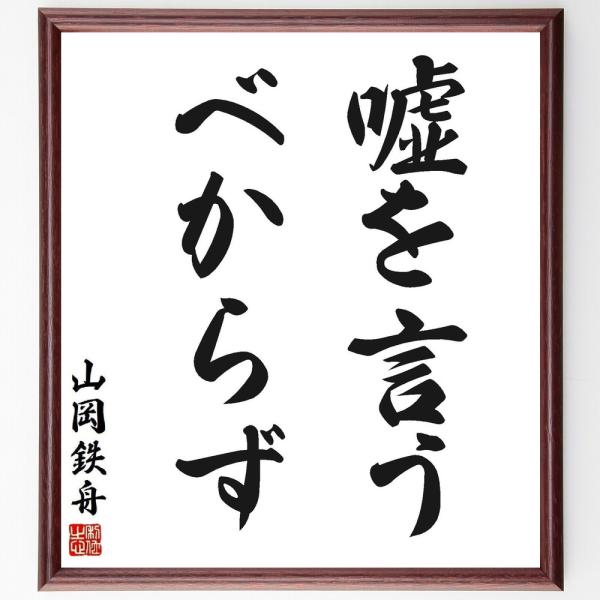 嘘を言う
べからず
山岡鉄舟